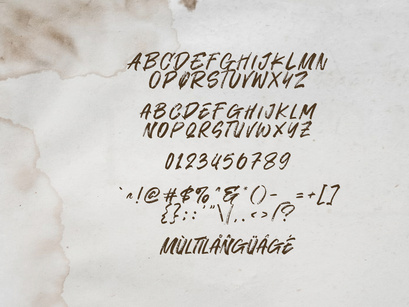 ABCDEFGHIJKLMN
OPQRSTUVWXYZ
ABCDEFGHIJKLM
NOPQRSTUVWXYZ
0123456789
`~!@#$%^&*()-_=+[]
{};:'"\|,.<>/?
MÙLTÌLÂNGÜÁGÉ